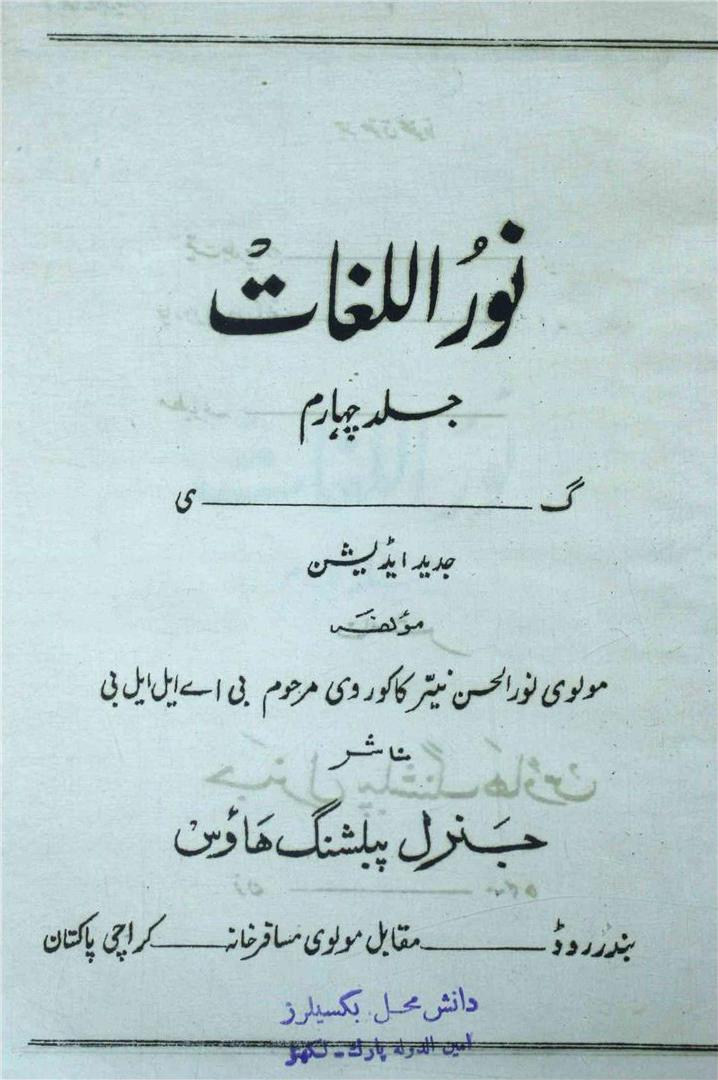 نورُ اللغاتْ
جلد چہارم
گ ــــــــــــــــ ی
جدید ایڈیشن
مؤلفہ
مولوی نور الحسن نیّر کاکوروی مرحوم بی اے ایل ایل بی
ناشر
جَنرل پبلشنگ ھَاؤس
بندر روڈ ــــــــ مقابل مولوی مسافر خانہ ــــــــ کراچی پاکستان
دانش محل بکسیلرز
امین الدولہ پارک - لکھنؤ